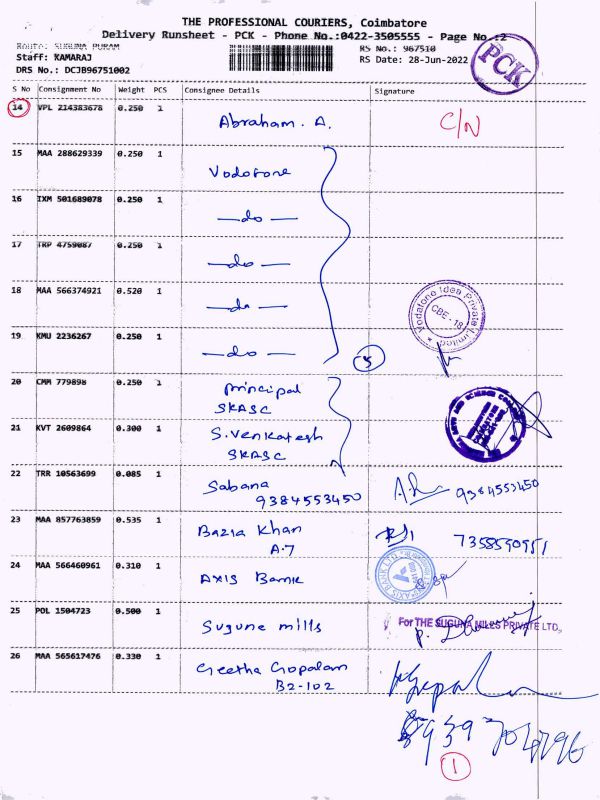 THE PROFESSIONAL COURIERS, Coimbatore
Delivery Runsheet - PCK - Phone No.:0422-3505555 - Page No.:2
Route: SUGUNA PURAM
RS No.: 967510
Staff: KAMARAJ
RS Date: 28-Jun-2022
DRS No.: DCJB96751002
PCK
S No Consignment No Weight PCS Consignee Details Signature
14 VPL 214383678 0.250 1 Abraham. A. C/N
15 MAA 288629339 0.250 1 Vodofone
16 IXM 501689078 0.250 1 —do—
17 TRP 4759087 0.250 1 —do—
18 MAA 566374921 0.520 1 —do—
Vodafone Idea Private Limited
CBE - 18
19 KMU 2236267 0.250 1 —do— 5
20 CMM 779898 0.250 1 Principal
SKASC
21 KVT 2609864 0.300 1 S. Venkatesh
SKASC
22 TRR 10563699 0.085 1 Sabana
9384553450 9384553450
23 MAA 857763859 0.535 1 Bazia Khan
A-7 7358590951
24 MAA 566460961 0.310 1 AXIS Bank
AXIS BANK LTD
25 POL 1504723 0.500 1 Sugune mills
For THE SUGUNA MILLS PRIVATE LTD.,
26 MAA 565617476 0.330 1 Geetha Gopalam
B2-102
1